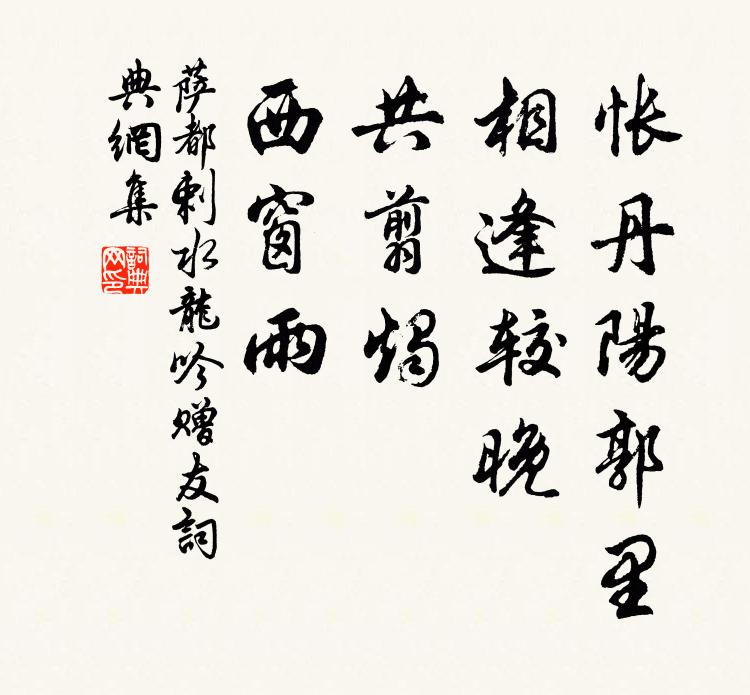 悵丹陽郭里
相逢較晚
共剪燭
西窗雨
薩都剌水龍吟贈友詞
典網集
詞典
网印